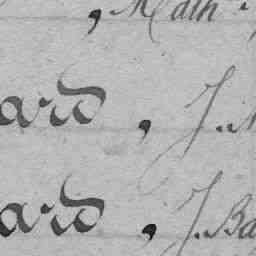 , Math
ard , J.
ard , J. Ba